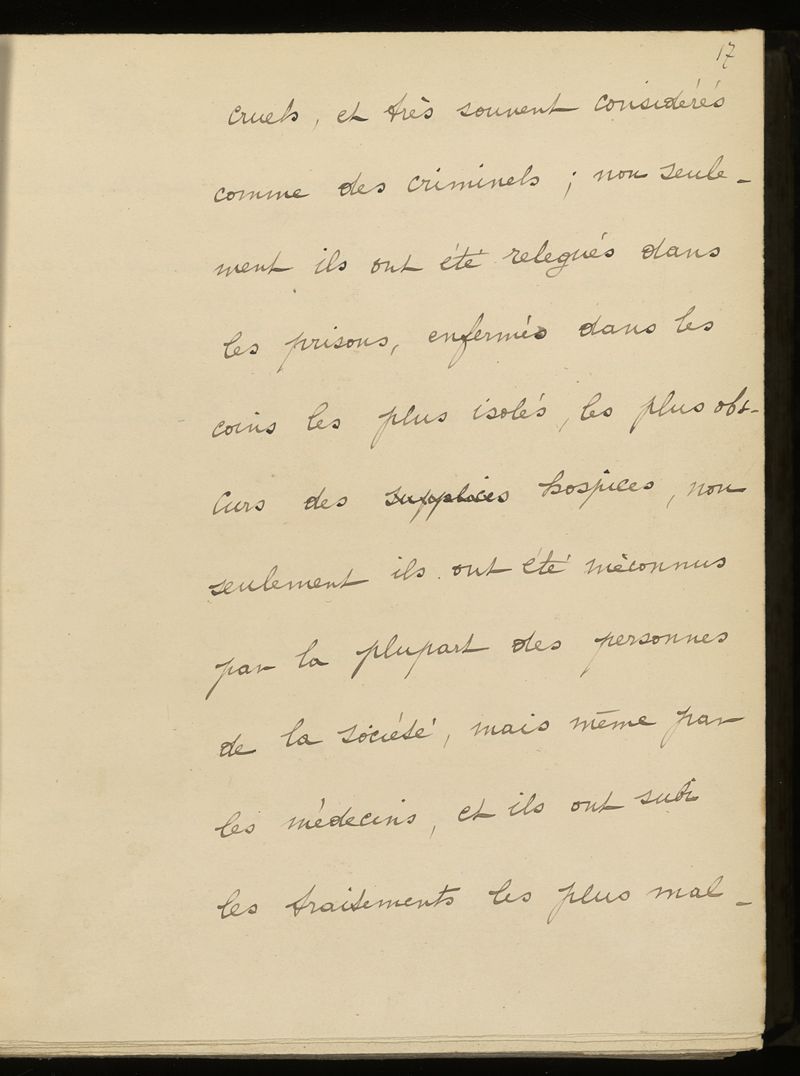 17
cruels, et très souvent considérés
comme des criminels ; non seule-
ment ils ont été relegués dans
les prisons, enfermés dans les
coins les plus isolés, les plus obs-
curs des supplices hospices, non
seulement ils ont été méconnus
par la plupart des personnes
de la société, mais même par
les médecins, et ils ont subi
les traitements les plus mal-